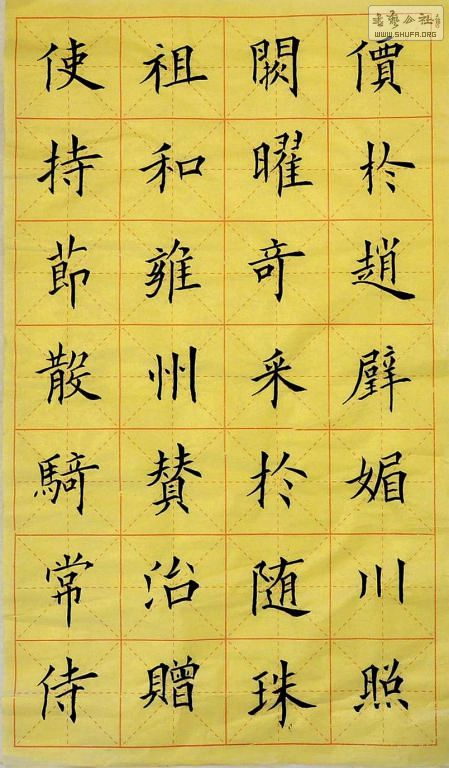 價於趙璧媚川照
闕曜奇采於随珠
祖和雍州賛治贈
使持節散騎常侍
WWW.SHUFA.ORG